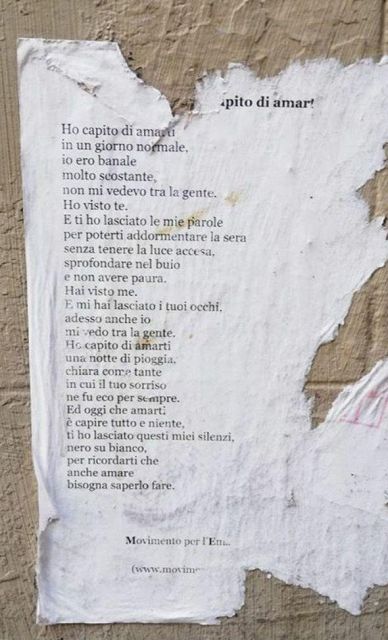 pito di amar
Ho capito di amarti
in un giorno normale,
io ero banale
molto scostante,
non mi vedevo tra la gente.
Ho visto te.
E ti ho lasciato le mie parole
per poterti addormentare la sera
senza tenere la luce accesa,
sprofondare nel buio
e non avere paura.
Hai visto me.
E mi hai lasciato i tuoi occhi,
adesso anche io
mi vedo tra la gente.
Ho capito di amarti
una notte di pioggia,
chiara come tante
in cui il tuo sorriso
ne fu eco per sempre.
Ed oggi che amarti
è capire tutto e niente,
ti ho lasciato questi miei silenzi,
nero su bianco,
per ricordarti che
anche amare
bisogna saperlo fare.
Movimento per l'Em
(www.movim